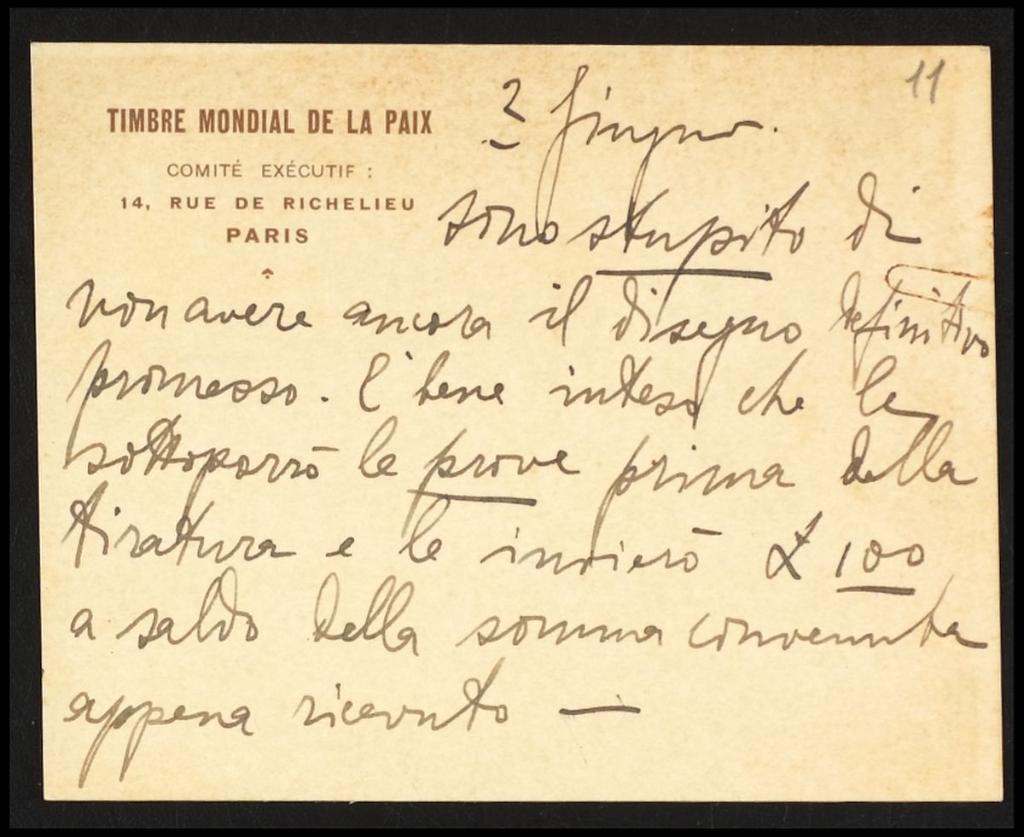 11
TIMBRE MONDIAL DE LA PAIX
COMITÉ EXÉCUTIF :
14, RUE DE RICHELIEU
PARIS
2 Giugno.
sono stupito di
non avere ancora il disegno definitivo
promesso. E' bene inteso che le
sottoporrò le prove prima della
tiratura e le invierò £ 100
a saldo della somma convenuta
appena ricevuto —